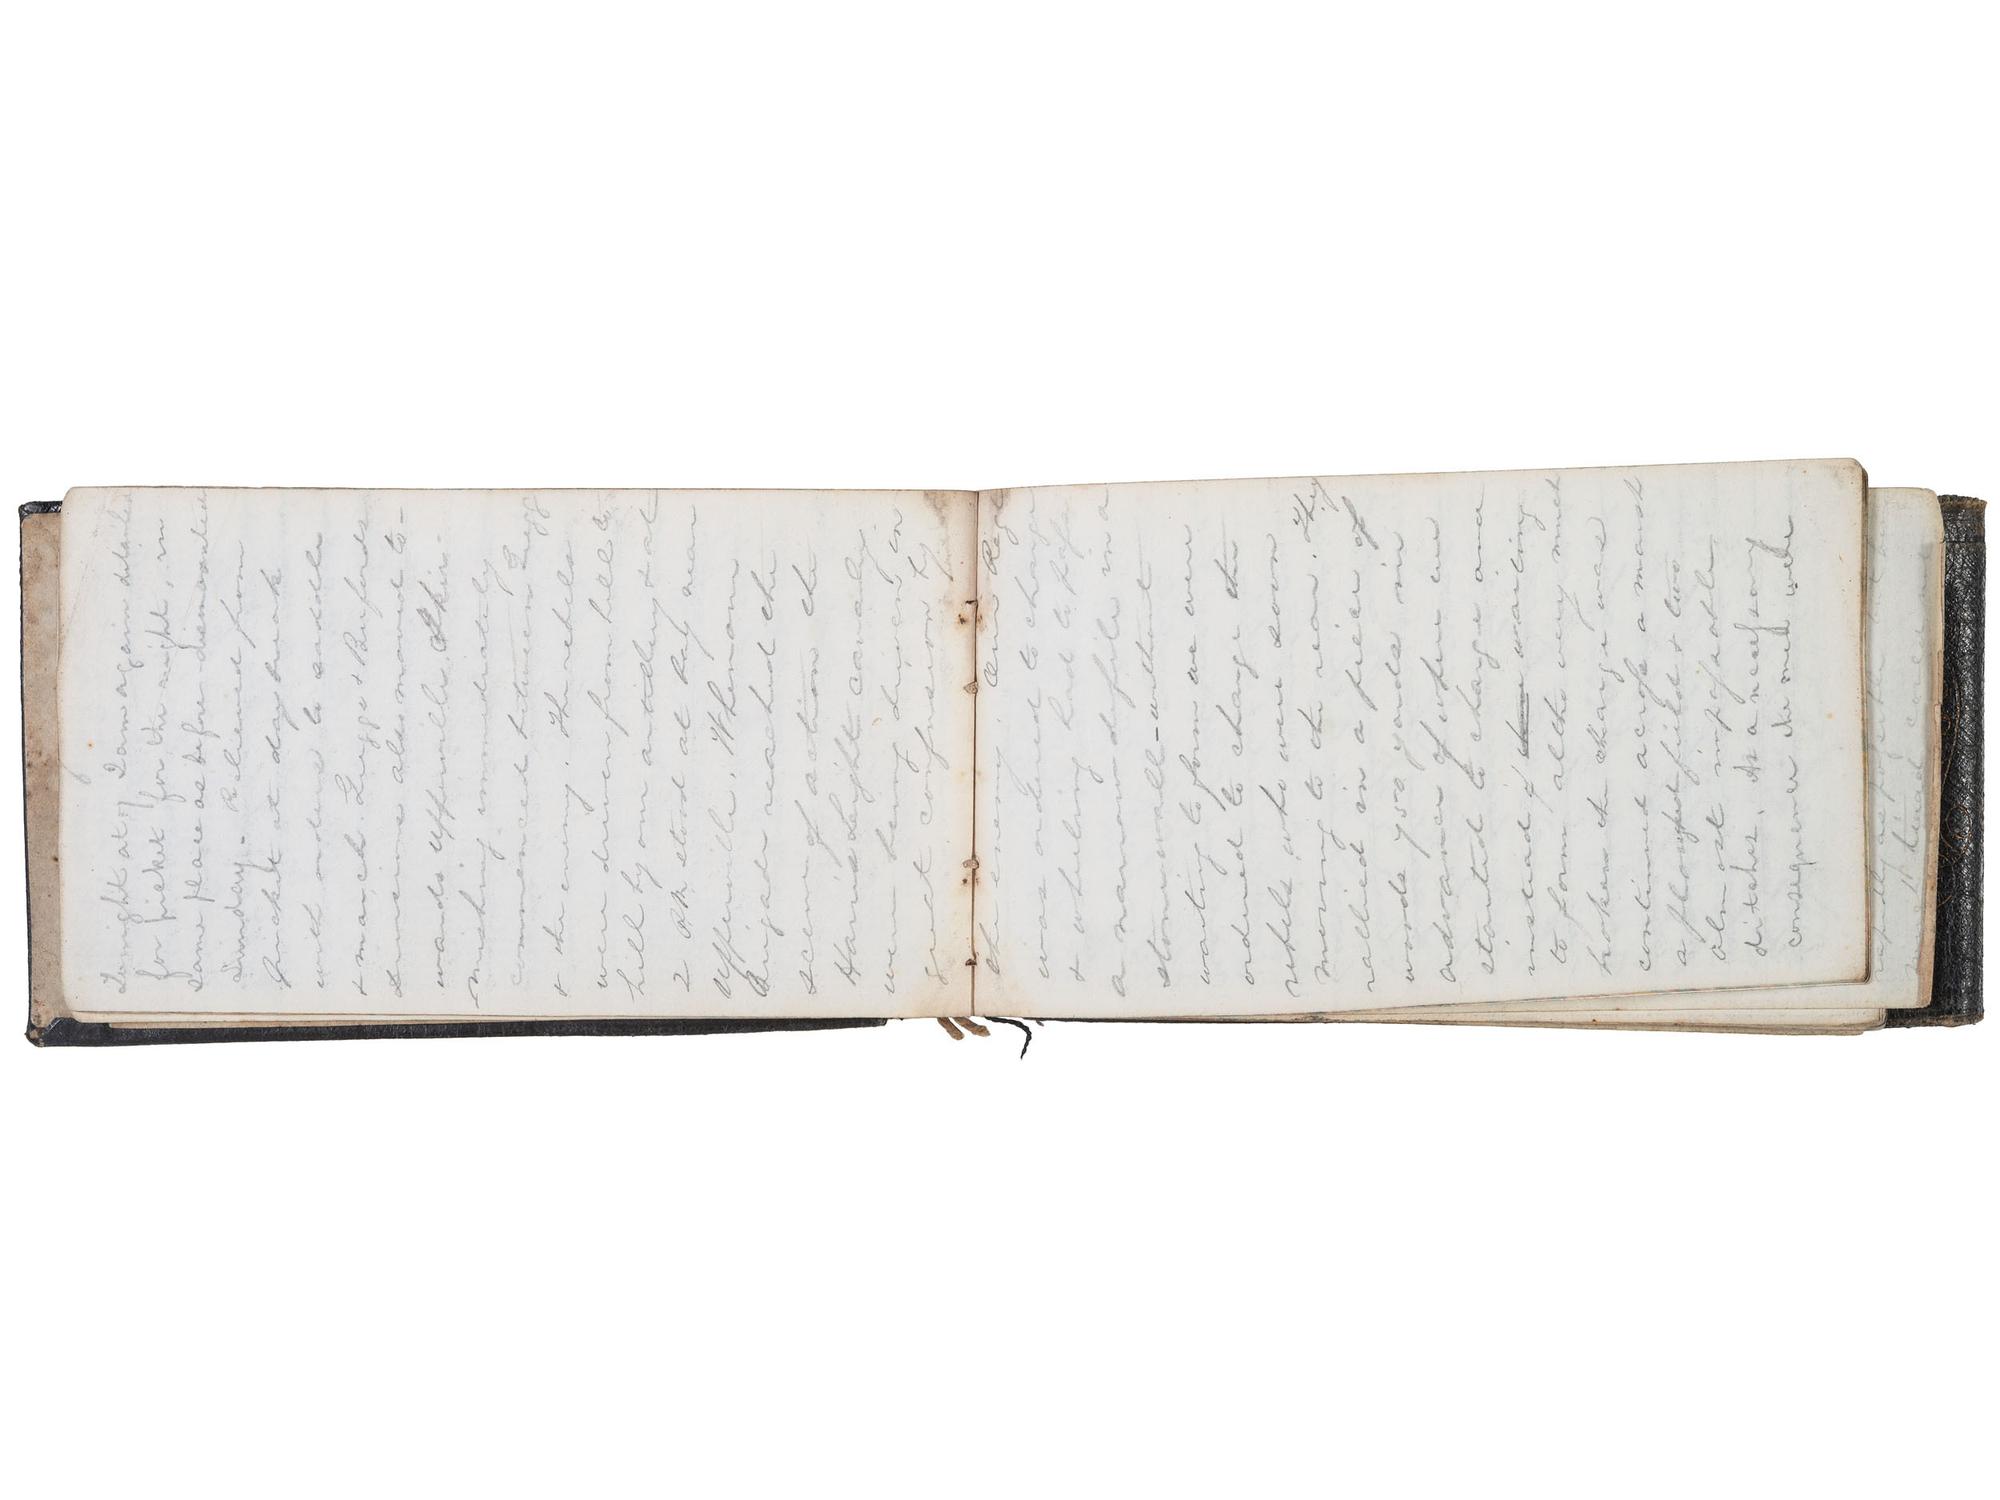 Tonight at 7 I am again detailed
for picket for the night, in
same place as before dismounted
Sunday - Relieved from
picket at daybreak
with orders to saddle
& march. Greggs & Bufords
divisions also moved to-
wards Upperville. Skir-
mishing immediately
commenced between Gregg
& the enemy. The rebels
were driven from hill to
hill by our artillery & at
2 P.M. stood at bay near
Upperville. When our
Brigade reached the
scene of action the
Harris Light Cavalry
were being driven in
great confusion by
the enemy. Our Regt
was ordered to charge
& wheling had to pass
a narrow defile in a
stonewall - without
waiting to form we were
ordered to charge the
rebels who were soon
moving to the rear. They
rallied in a piece of
woods 450 yards in
advance of where we
started to charge and
instead of waiting
to form altho very much
broken the charge was
continued across a marsh
a ploughed field & two
almost impassable
ditches. As a necessary
consequence the men were
rapidly as